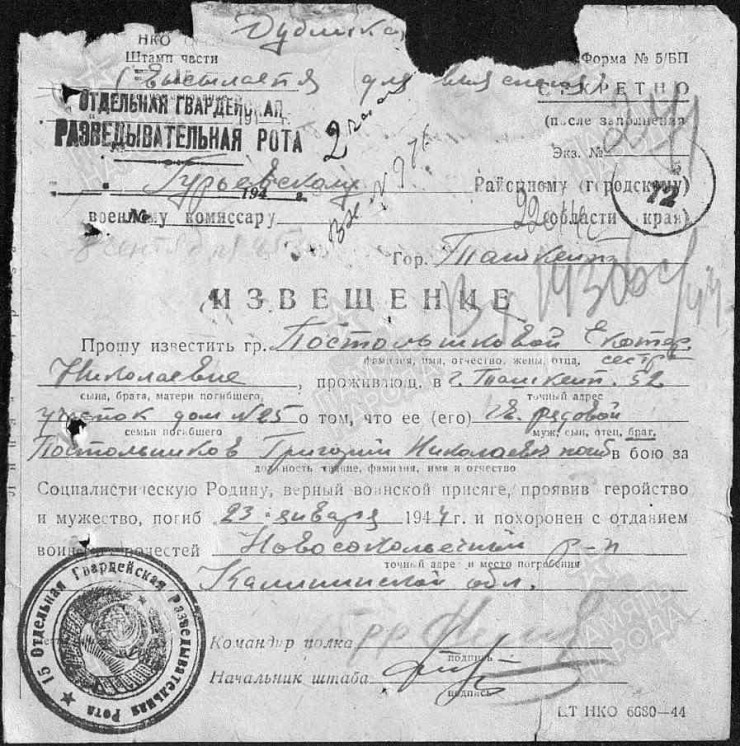 Дублика
НКО
Штамп части
Форма № 5/БП
Высылается для
СЕКРЕТНО
ОТДЕЛЬНАЯ ГВАРДЕЙСКАЯ
РАЗВЕДЫВАТЕЛЬНАЯ РОТА
(после заполнения
Экз. №
194 г.
Районному (городскому)
72
военному комиссару
области края)
Гор. Ташкент
ИЗВЕЩЕНИЕ
Прошу известить гр. Постольшиковой Екатер
фамилия, имя, отчество, жены, отца, сестр
Николаевне, проживающ. в г. Ташкент. 52
сына, брата, матери погибшего, точный адрес
участок дом №25 о том, что ее (его) гв. рядовой
семьи погибшего муж, сын, отец, брат,
Постольшиков Григорий Николаевич погиб в бою за
должность звание, фамилия, имя и отчество
Социалистическую Родину, верный воинской присяге, проявив геройство
и мужество, погиб 23 января 1944 г. и похоронен с отданием
воинских почестей Новосокольнический р-н
точный адрес и место погребения
Калининской обл.
Командир полка
подпись
Начальник штаба
подпись
15 Отдельная Гвардейская Разведывательная Рота
ПАМЯТЬ НАРОДА
НКО 6680—44